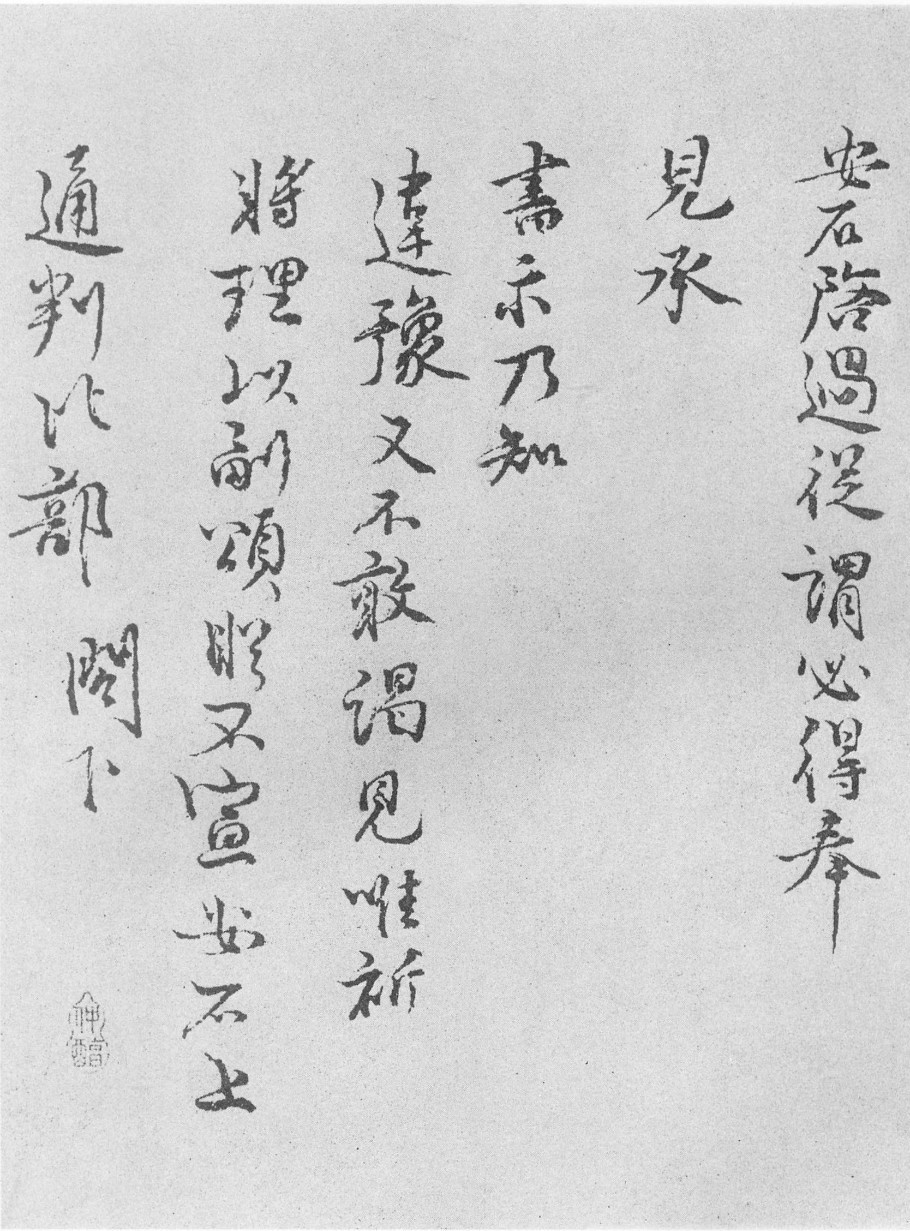 安石啓過從謂必得奉
見承
書示乃知
違豫又不敢謁見唯祈
將理以副頌眤不宣安石上
通判比部 閤下